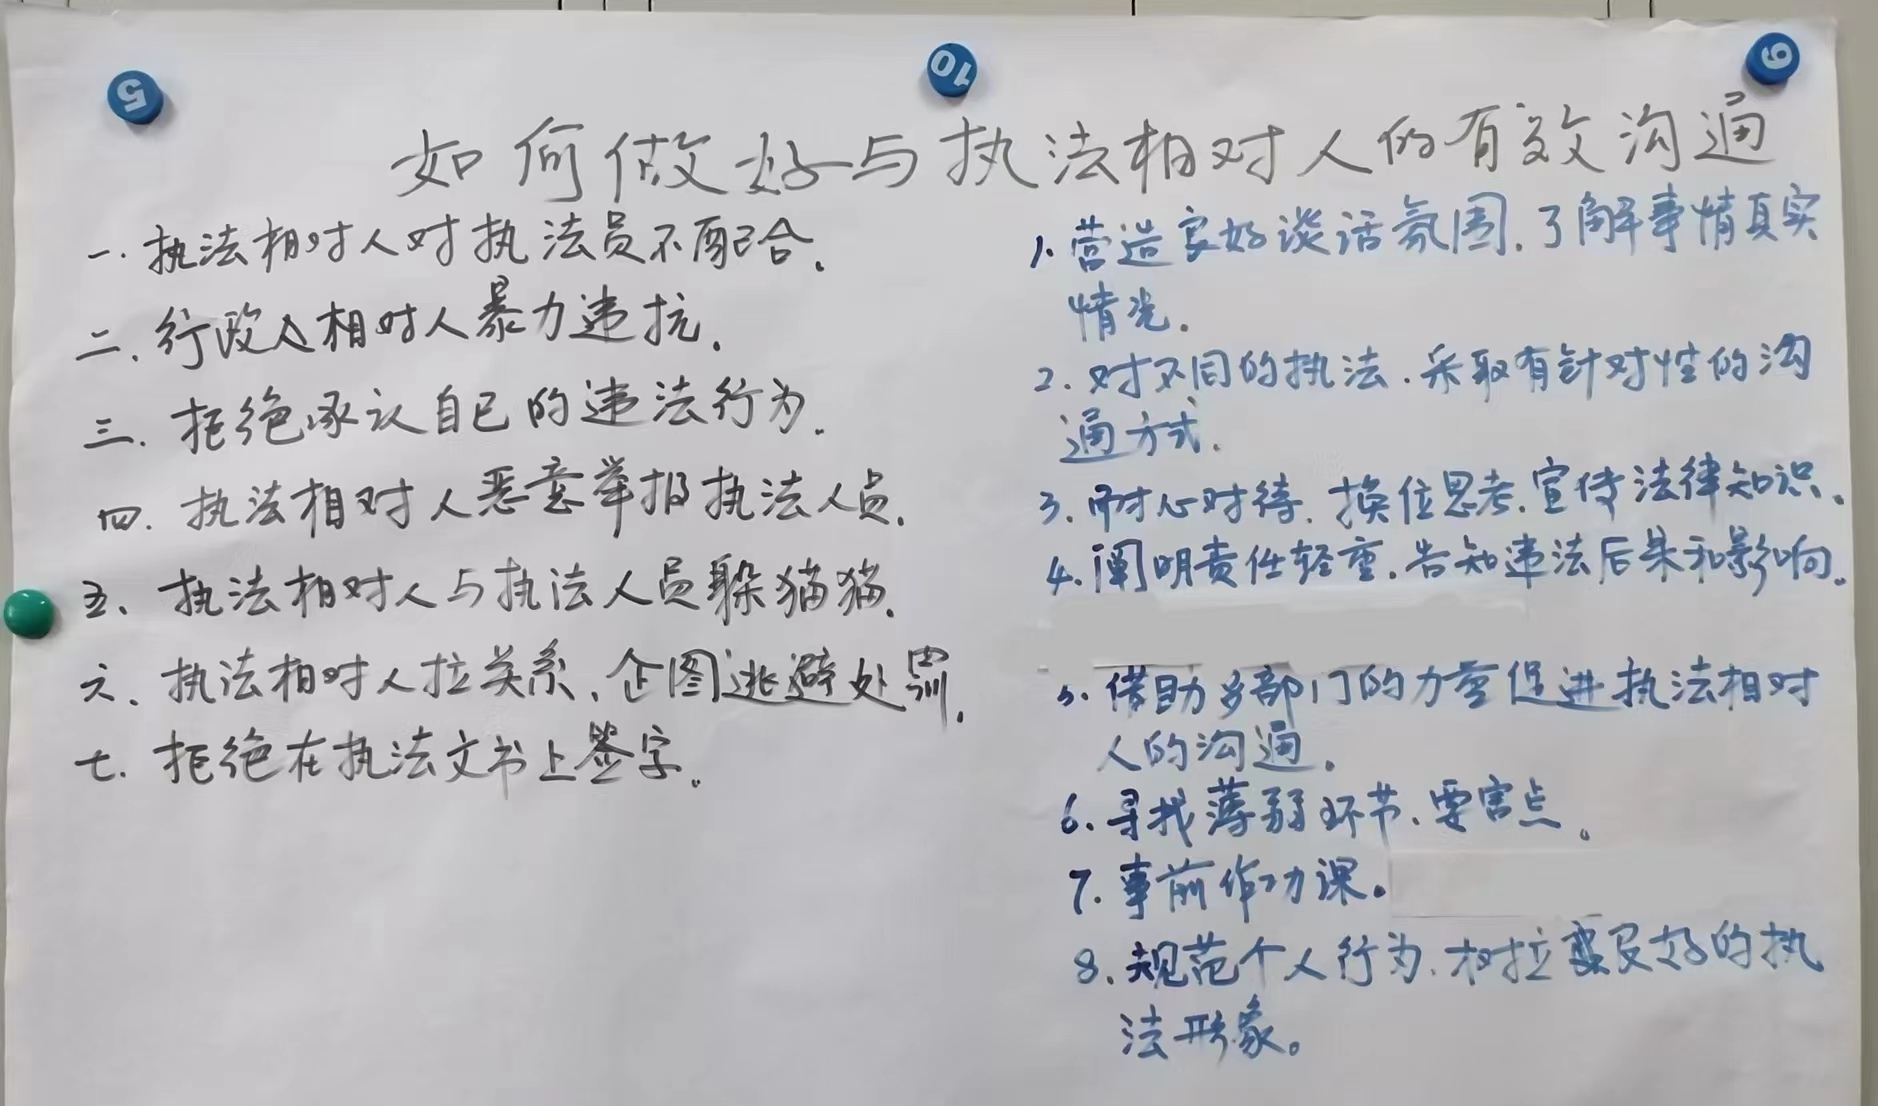 5
10
9
如何做好与执法相对人的有效沟通
一.执法相对人对执法员不配合.
二.行政相对人暴力违抗.
三.拒绝承认自己的违法行为.
四.执法相对人恶意举报执法人员.
五、执法相对人与执法人员躲猫猫.
六、执法相对人拉关系、企图逃避处罚.
七.拒绝在执法文书上签字。
1.营造良好谈话氛围.了解事情真实
情况.
2.对不同的执法.采取有针对性的沟
通方式.
3.耐心对待.换位思考.宣传法律知识.
4.阐明责任轻重.告知违法后果和影响.
5.借助多部门的力量促进执法相对
人的沟通.
6.寻找薄弱环节.要害点。
7.事前作功课。
8.规范个人行为.树拉良好的执
法形象。